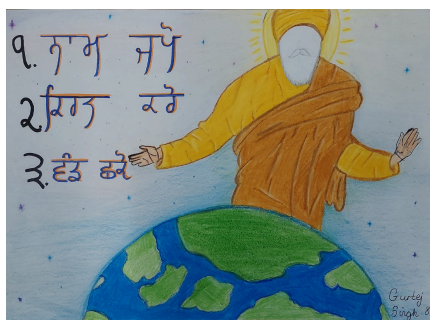 ੧. ਨਾਮ ਜਪੋ
੨ ਕਿਰਤ ਕਰੋ
੩. ਵੰਡ ਛਕੋ
Gurtej
Singh 8